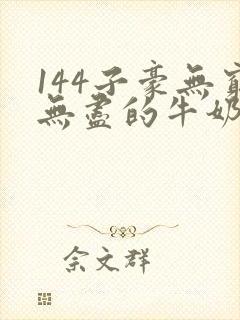 144子豪無窮
無盡的牛奶
佘文群